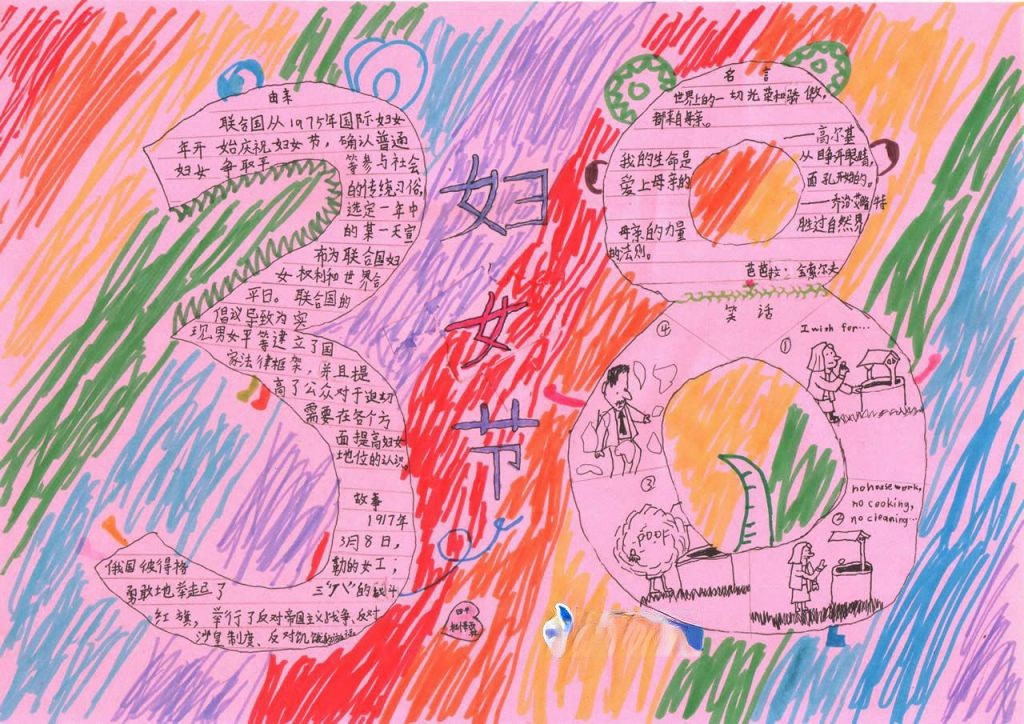 由来
联合国从1975年国际妇女
年开始庆祝妇女节，确认普通
妇女争取平等参与社会
的传统习俗，
选定一年中
的某一天宣
布为联合国妇
女权利和世界合
平日。联合国的
倡议导致为实
现男女平等建立了国
家法律框架，并且提
高了公众对于迫切
需要在各个方
面提高妇女
地位的认识。
故事
1917年
3月8日，
俄国彼得格勒的女工；
勇敢地举起了三“八”的战斗
红旗，举行了反对帝国主义战争、反对
沙皇制度、反对饥饿的
妇
女
节
名言
世界上的一切光荣和骄傲，
都来自母亲。
——高尔基
我的生命是从睁开眼睛，
爱上母亲的面孔开始的。
——乔治·艾略特
母亲的力量胜过自然界
的法则。
芭芭拉：金索尔夫
笑话
①
I wish for...
②
no housework,
no cooking,
no cleaning...
③
POOF
④